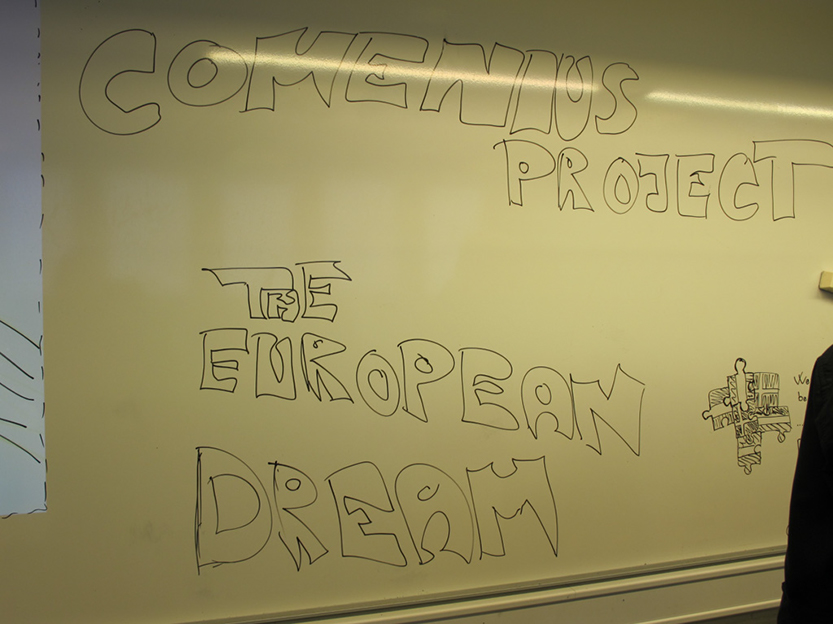 COMENIUS
PROJECT
THE
EUROPEAN
DREAM